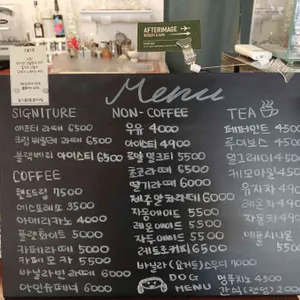 AFTERIMAGE
Menu
SIGNITURE
애프터 라떼 6500
크림 쌀라떼 6500
블랙베리 아이스티 6500
COFFEE
핸드드립 7500
에스프레소 3500
아메리카노 4000
플랫화이트 5000
카페라떼 5000
카페모카 5500
바닐라빈 라떼 6000
아인슈페너 6000
NON-COFFEE
우유 4000
아이스티 4900
로얄 밀크티 5500
초코라떼 6500
딸기라떼 6000
제주말차라떼 6000
자몽에이드 5500
레몬에이드 5500
자두에이드 5500
레트로커피 6500
바닐라
DOG
MENU
TEA
페퍼민트 4500
루이보스 4500
얼그레이 4500
캐모마일 4500
유자차
레몬차
자몽차
애플시나몬
5500
멍푸치노 4500